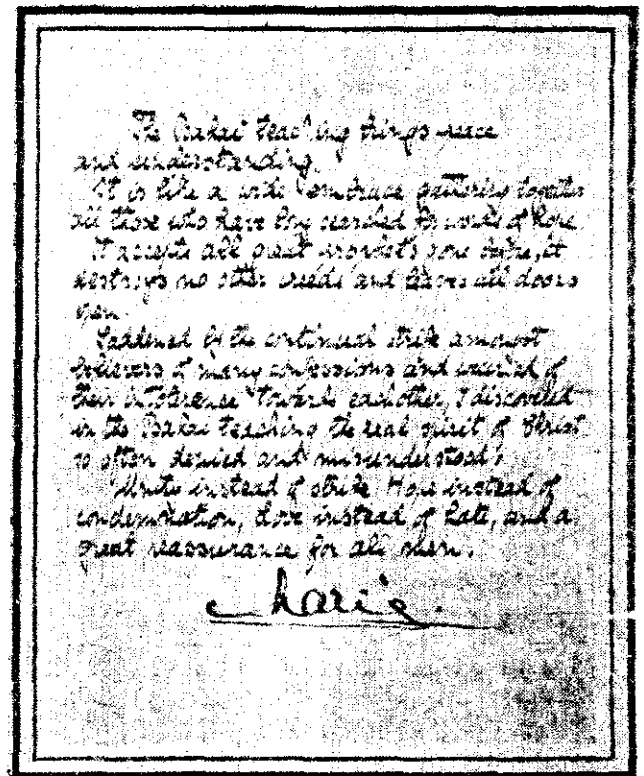 The Bahai teaching brings peace
and understanding.
It is like a wide embrace gathering together
all those who have long searched for words of hope.
It accepts all great prophets gone before, it
destroys no other creeds and leaves all doors
open.
Saddened by the continual strife amongst
believers of many confessions and wearied of
their intolerance towards eachother, I discovered
in the Bahai teaching the real spirit of Christ
so often denied and misunderstood:
Unity instead of strife, Hope instead of
condemnation, Love instead of hate, and a
great reassurance for all men.
Marie.